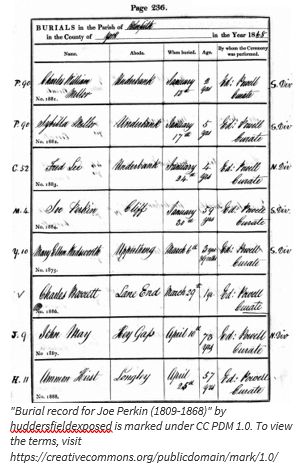 Page 236.
BURIALS in the Parish of
in the County of York in the Year 1868
Name. Abode. When buried. Age. By whom the Ceremony was performed.
P. 90 Charles William Mellor Underbank January 2 yrs Ed: Powell Curate S. Div
No. 1881.
P. 90 Mellor Underbank January 17th 5 yrs Ed: Powell Curate S. Div
No. 1882.
C. 52 Ford Lee Underbank January 24th 4 yrs Ed: Powell Curate N. Div
No. 1883.
M. 4 Joe Perkin Cliff January 59 yrs Ed: Powell Curate S. Div
No. 1884.
Y. 10 Mary Ellen Wadsworth March 6th 3 yrs Ed: Powell Curate S. Div
V Charles Lane End March 29th Ed: Powell Curate
No. 1886.
J. 9 John May Hey Gap April 10th 78 yrs Ed: Powell Curate N. Div
No. 1887.
H. 11 Ammon Hirst Longley April 25th 57 yrs Ed: Powell Curate
No. 1888.
"Burial record for Joe Perkin (1809-1868)" by
huddersfieldexposed is marked under CC PDM 1.0. To view
the terms, visit
https://creativecommons.org/publicdomain/mark/1.0/